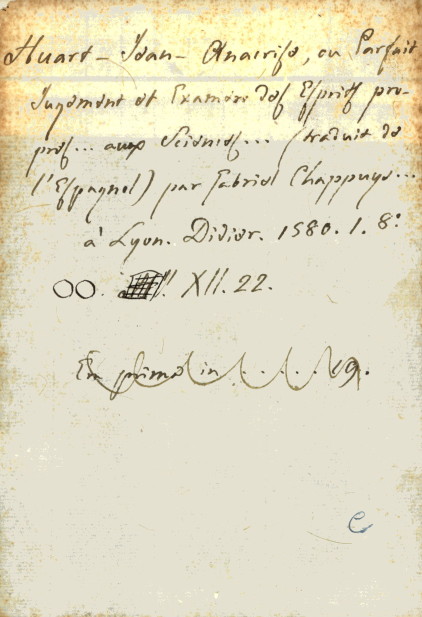 Huart - Jean - Anacrise, ou Parfait
Jugement et Examen des Esprits pro-
pres... aux Sciences... (traduit de
l'Espagnol) par Gabriel Chappuys...
à Lyon. Didier. 1580. 1. 8°.
OO. XII. 22.
in . . . . . 19.
C